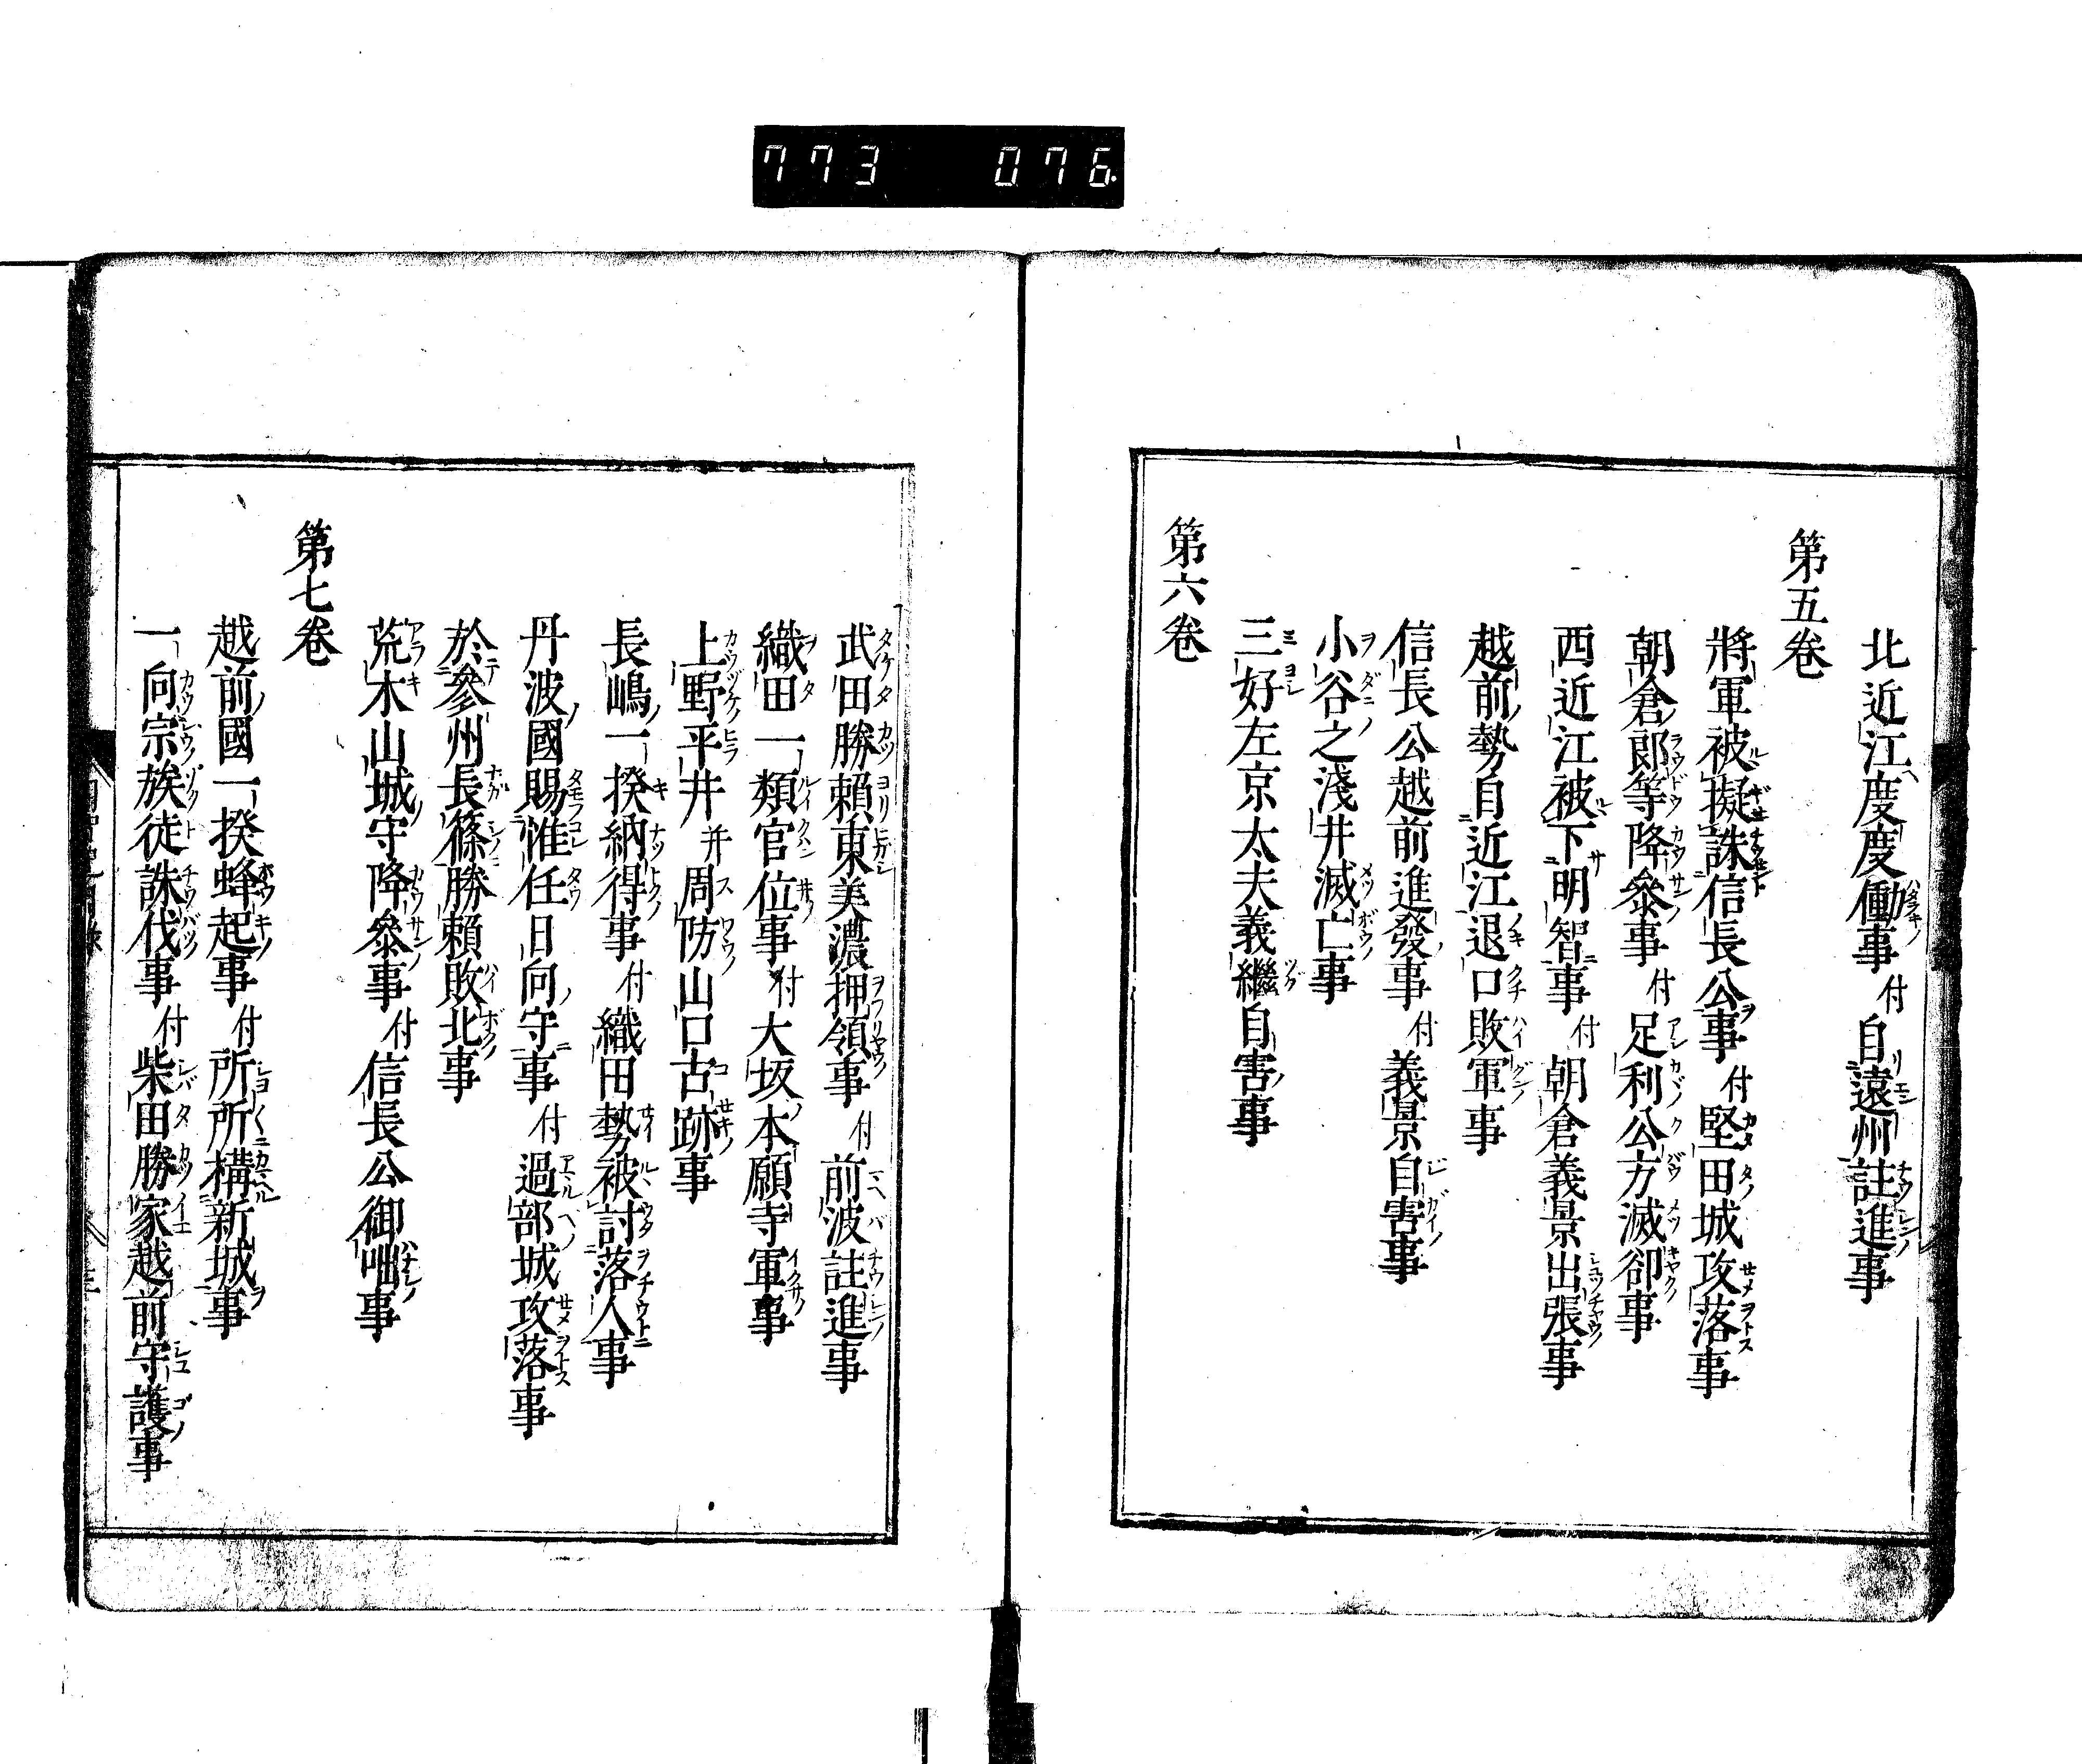 773 076
北近江度度働事付自遠州註進事
第五卷
將軍被擬誅信長公事付堅田城攻落事
朝倉郎等降參事付足利公方滅卻事
西近江被下明智事付朝倉義景出張事
越前勢自近江退口敗軍事
信長公越前進發事付義景自害事
小谷之淺井滅亡事
三好左京太夫義繼自害事
第六卷
武田勝賴東美濃押領事付前波註進事
織田一類官位事付大坂本願寺軍事
上野平井并周防山口古跡事
長嶋一揆納得事付織田勢被討落人事
丹波國賜惟任日向守事付過部城攻落事
於參州長篠勝賴敗北事
荒木山城守降參事付信長公御咄事
第七卷
越前國一揆蜂起事付所所構新城事
一向宗族徒誅伐事付柴田勝家越前守護事